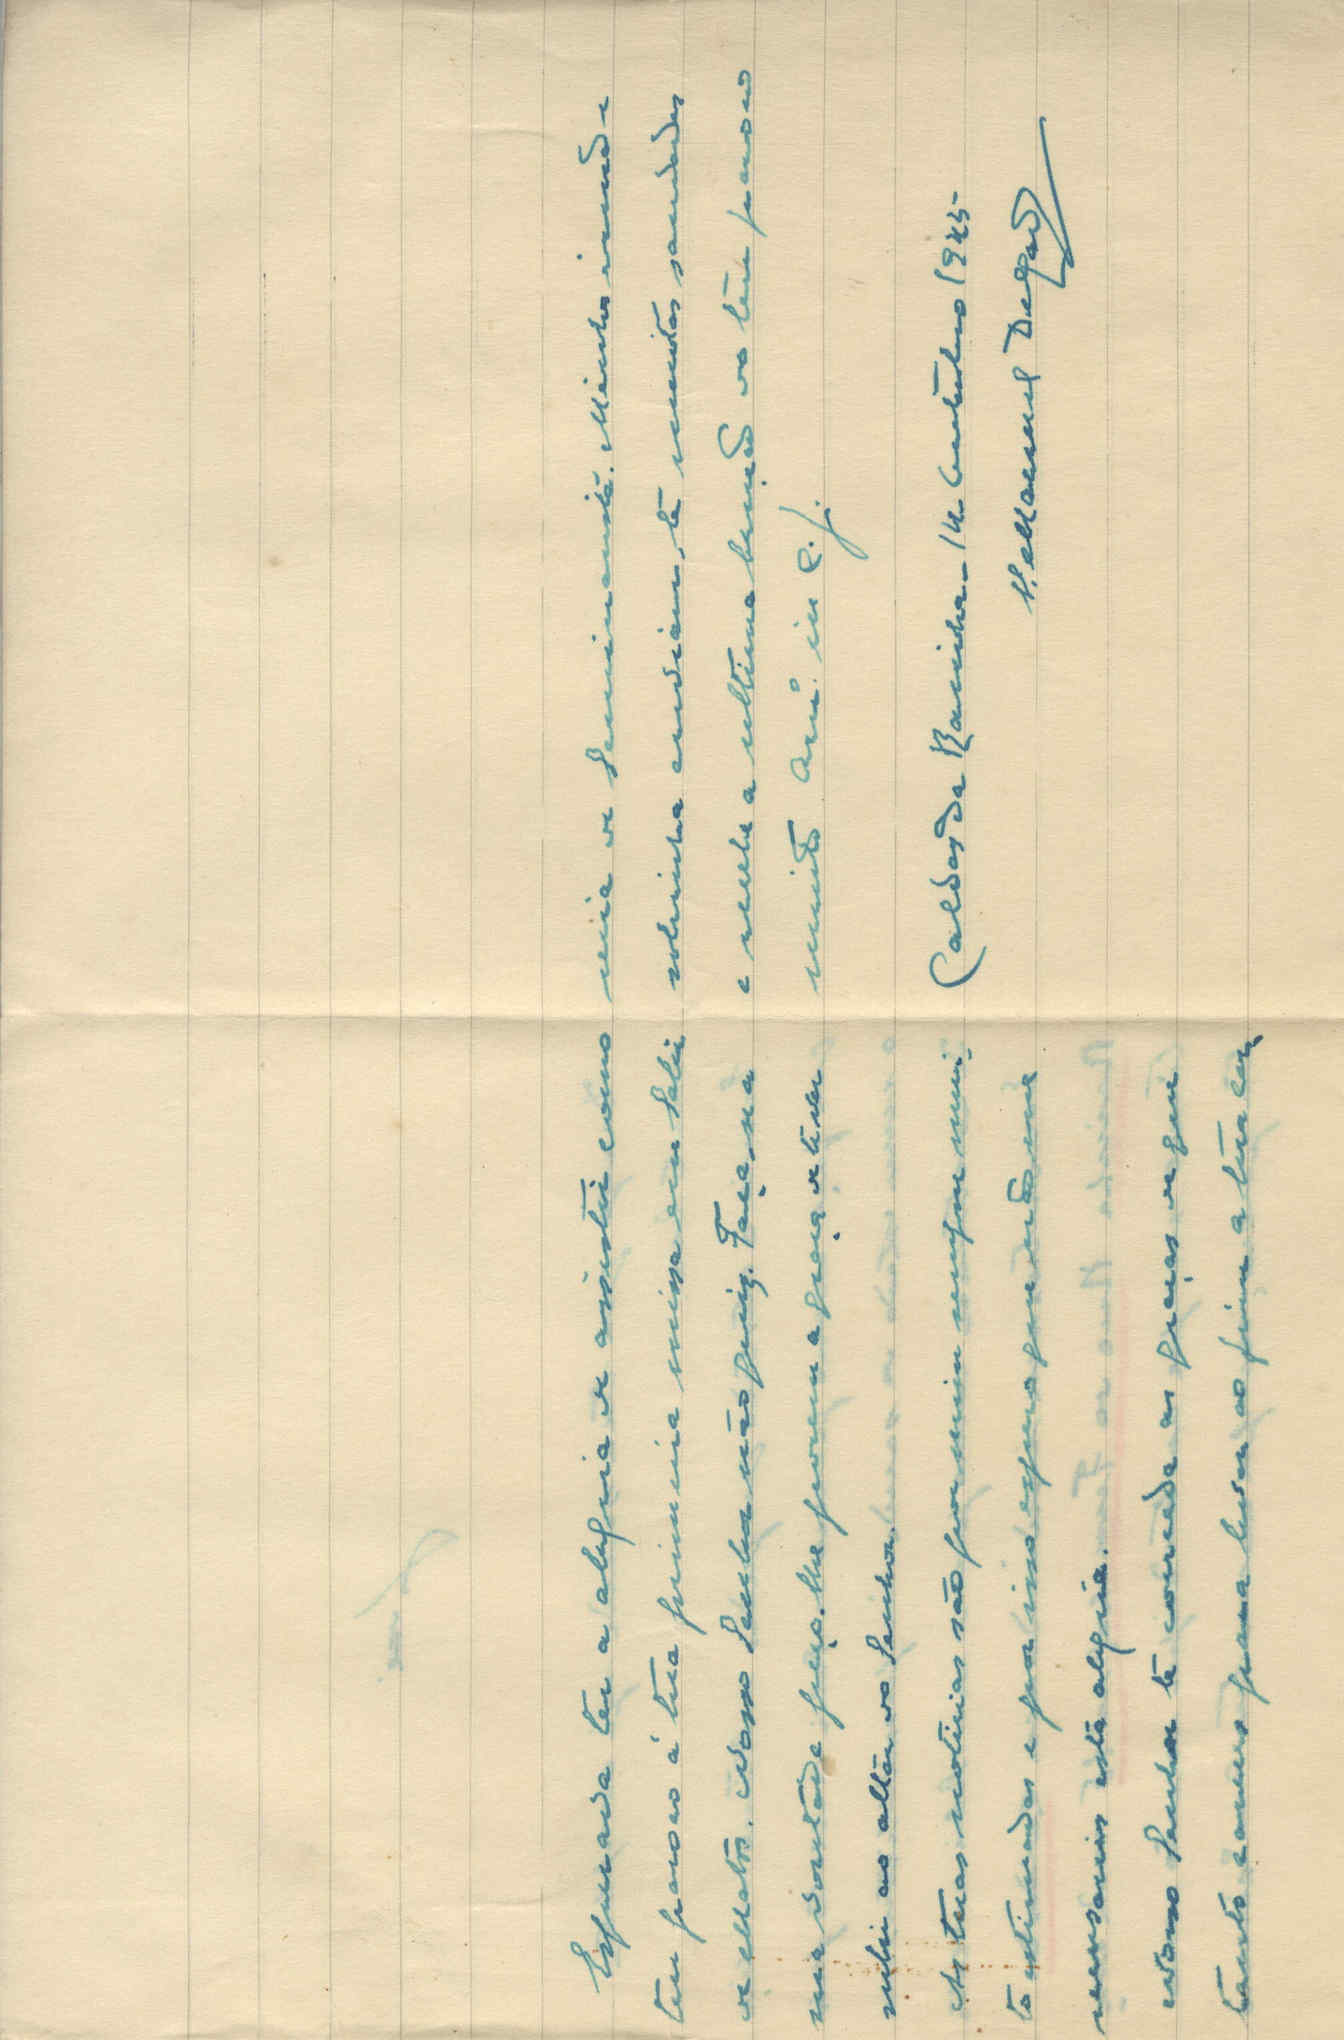 Esperava ter a alegria de assistir como
teu paroco á tua primeira missa em Salir
de Mattos. Nosso Senhor não quiz. Faça-se a
sua vontade peço-lhe porem a graça de te ver
subir ao altar do Senhor.
As tuas noticias são por mim sempre mui-
to estimadas e por isso espero que não me
recusarás esta alegria.
Nosso Senhor te conceda as graças de que
tanto careces para levar ao fim a tua car-
reira de Seminarista. Minha irmã e
sobrinha enviam-te muitas saudades
e recebe a ultima benção do teu paroco
muito am.º in C. J.
Caldas da Rainha - 14 Outubro 1945-
P. Manuel Delgado